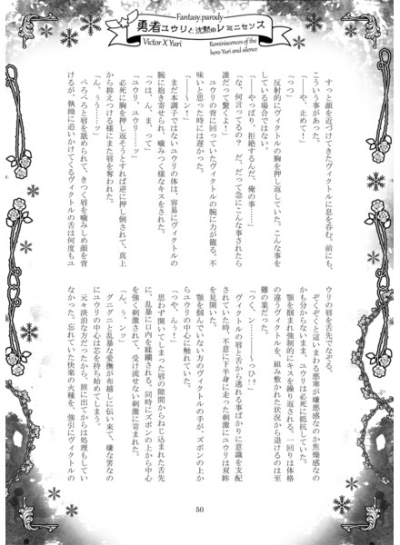 Fantasy.parody
勇者ユウリと沈黙のレミニセンス
Victor X Yuri
Reminiscences of the
hero Yuri and silence
すっと顔を近づけてきたヴィクトルに息を呑む。前にも、
こういう事があった。
「――や、止めて！」
「っっ」
反射的にヴィクトルの胸を押し返していた。こんな事を
している場合ではない。
「――やっぱり、拒絶するんだ、俺の事――」
「な、何言ってるの？ だ、だって急にこんな事されたら
誰だって驚くよ！」
ユウリの背に回っていたヴィクトルの腕に力が籠る。不
味いと思った時には遅かった。
「――ン！」
まだ本調子ではないユウリの体は、容易にヴィクトルの
腕に抱き寄せられ、噛みつく様なキスをされた。
「っは、ん、ま、って」
「ユウリ、ユウリ……っ」
必死に胸を押し返そうとすれば逆に押し倒されて、真上
から抑えつける様にまた唇を奪われた。
「ん、うう――ッ」
べろべろと唇を舐められて、きつく唇を噛みしめ顔を背
けるが、執拗に追いかけてくるヴィクトルの舌は何度もユ
ウリの唇を舌先でなぞる。
ぞくぞくと這いまわる悪寒が嫌悪感なのか焦燥感なの
かも分からないまま、ユウリは必死に抵抗していた。
顎を掴まれ強制的にキスを繰り返される。一回りは体格
の違うヴィクトルを、組み敷かれた状況から退けるのは至
難の業だった。
「――っつ！？」
ヴィクトルの唇と舌から逃れる事ばかりに意識を支配
されていた時、不意に下半身に走った刺激にユウリは双眸
を見開いた。
顎を掴んでいない方のヴィクトルの手が、ズボンの上か
らユウリの中心に触れていた。
「つや、んぅ！」
思わず開いてしまった唇の隙間からねじ込まれた舌先
に、乱暴に口内を蹂躙される。同時にズボンの上から中心
を強く刺激されて、受け流せない刺激に苛まれた。
「ん、ぅ、ンッ」
グニグニと乱暴な愛撫が布越しに伝い来て、嫌な筈なの
にユウリの中心は芯を持ち始めてしまう。
元々淡泊な方だったからか、旅に出てからは処理もしてい
なかった。忘れていた快楽の火種を、強引にヴィクトルの
50